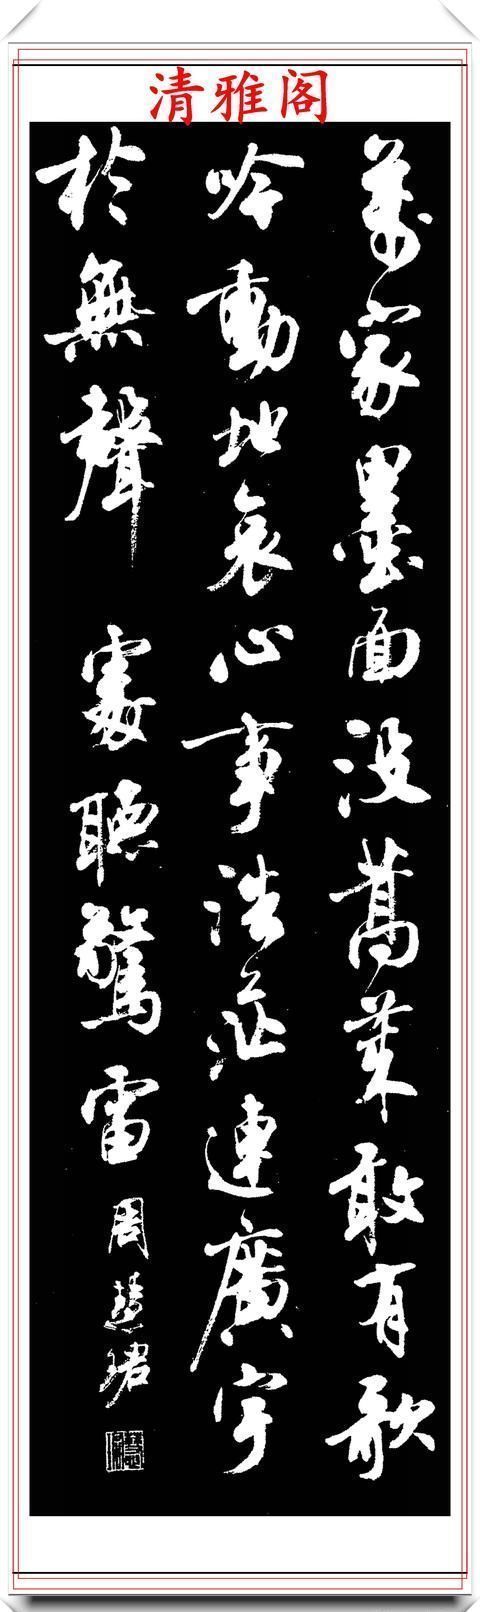 清雅阁
萬家墨面没蒿萊敢有歌
吟動地哀心事浩茫連廣宇
於無聲處聽驚雷 周慧珺